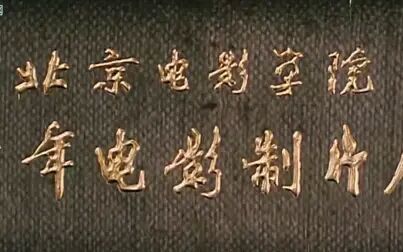 北京电影学院
年电影制片